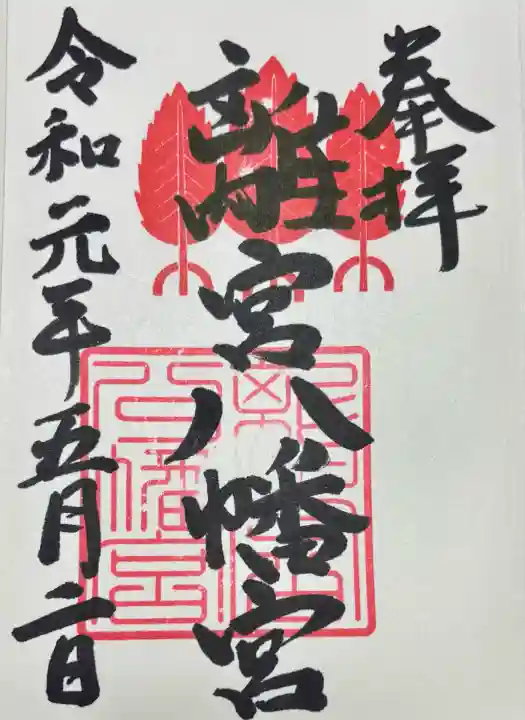 奉拝
離宮八幡宮
令和元年五月二日